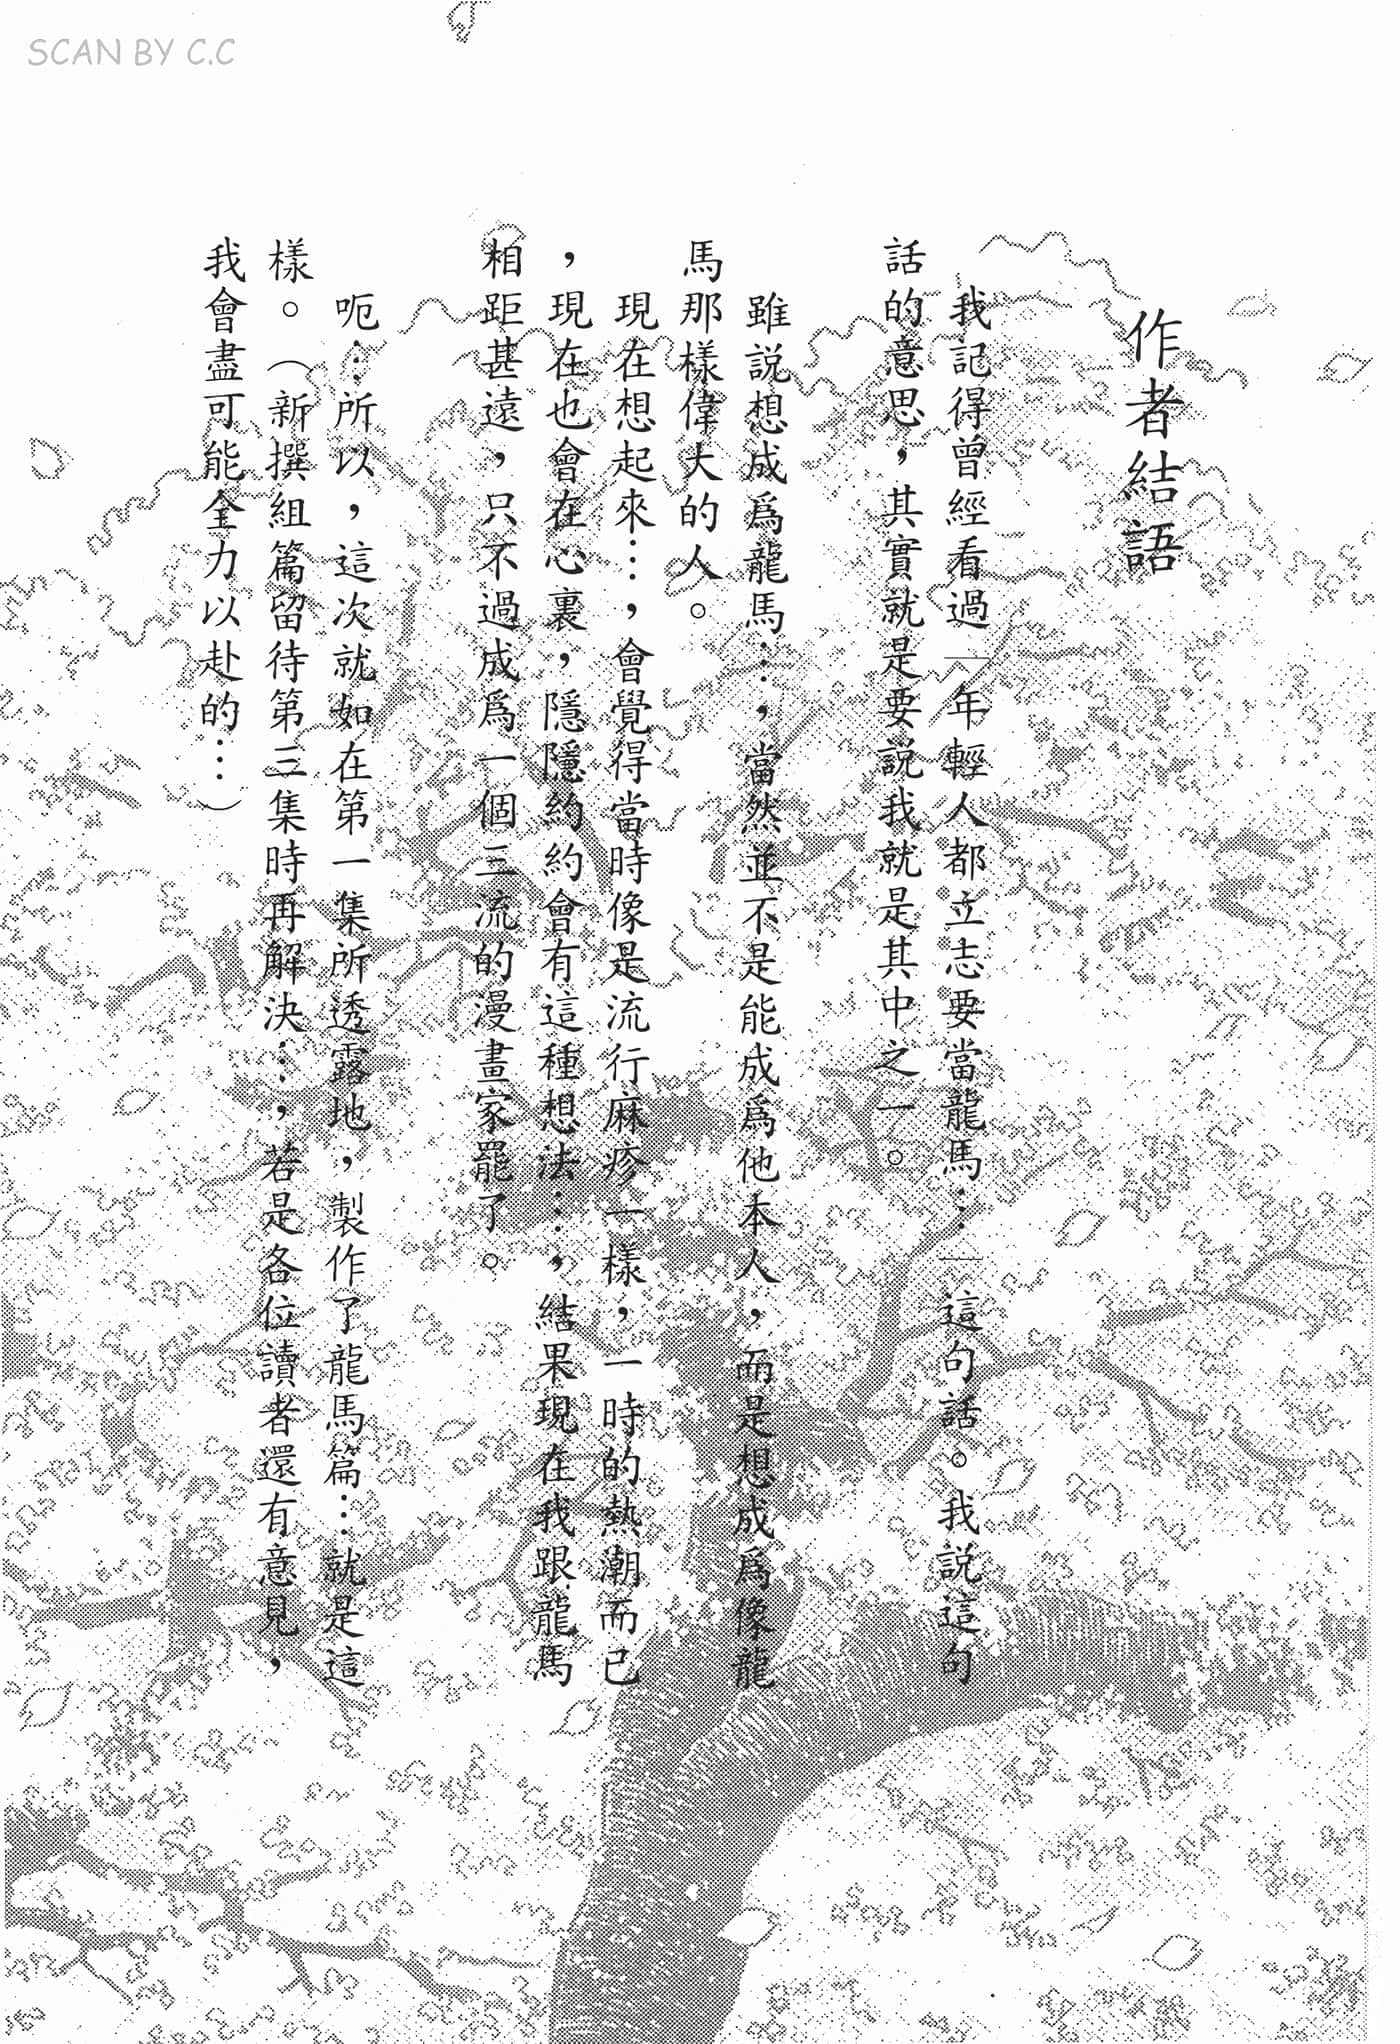 SCAN BY C.C
作者結語
我記得曾經看過—年輕人都立志要當龍馬…—這句話。我說這句
話的意思，其實就是要說我就是其中之一。
雖說想成爲龍馬…，當然並不是能成爲他本人，而是想成爲像龍
馬那樣偉大的人。
現在想起來…，會覺得當時像是流行麻疹一樣，一時的熱潮而已
，現在也會在心裏，隱隱約約會有這種想法…，結果現在我跟龍馬
相距甚遠，只不過成爲一個三流的漫畫家罷了。
呃…所以，這次就如在第一集所透露地，製作了龍馬篇…就是這
樣。（新撰組篇留待第三集時再解決…，若是各位讀者還有意見，
我會盡可能全力以赴的…）